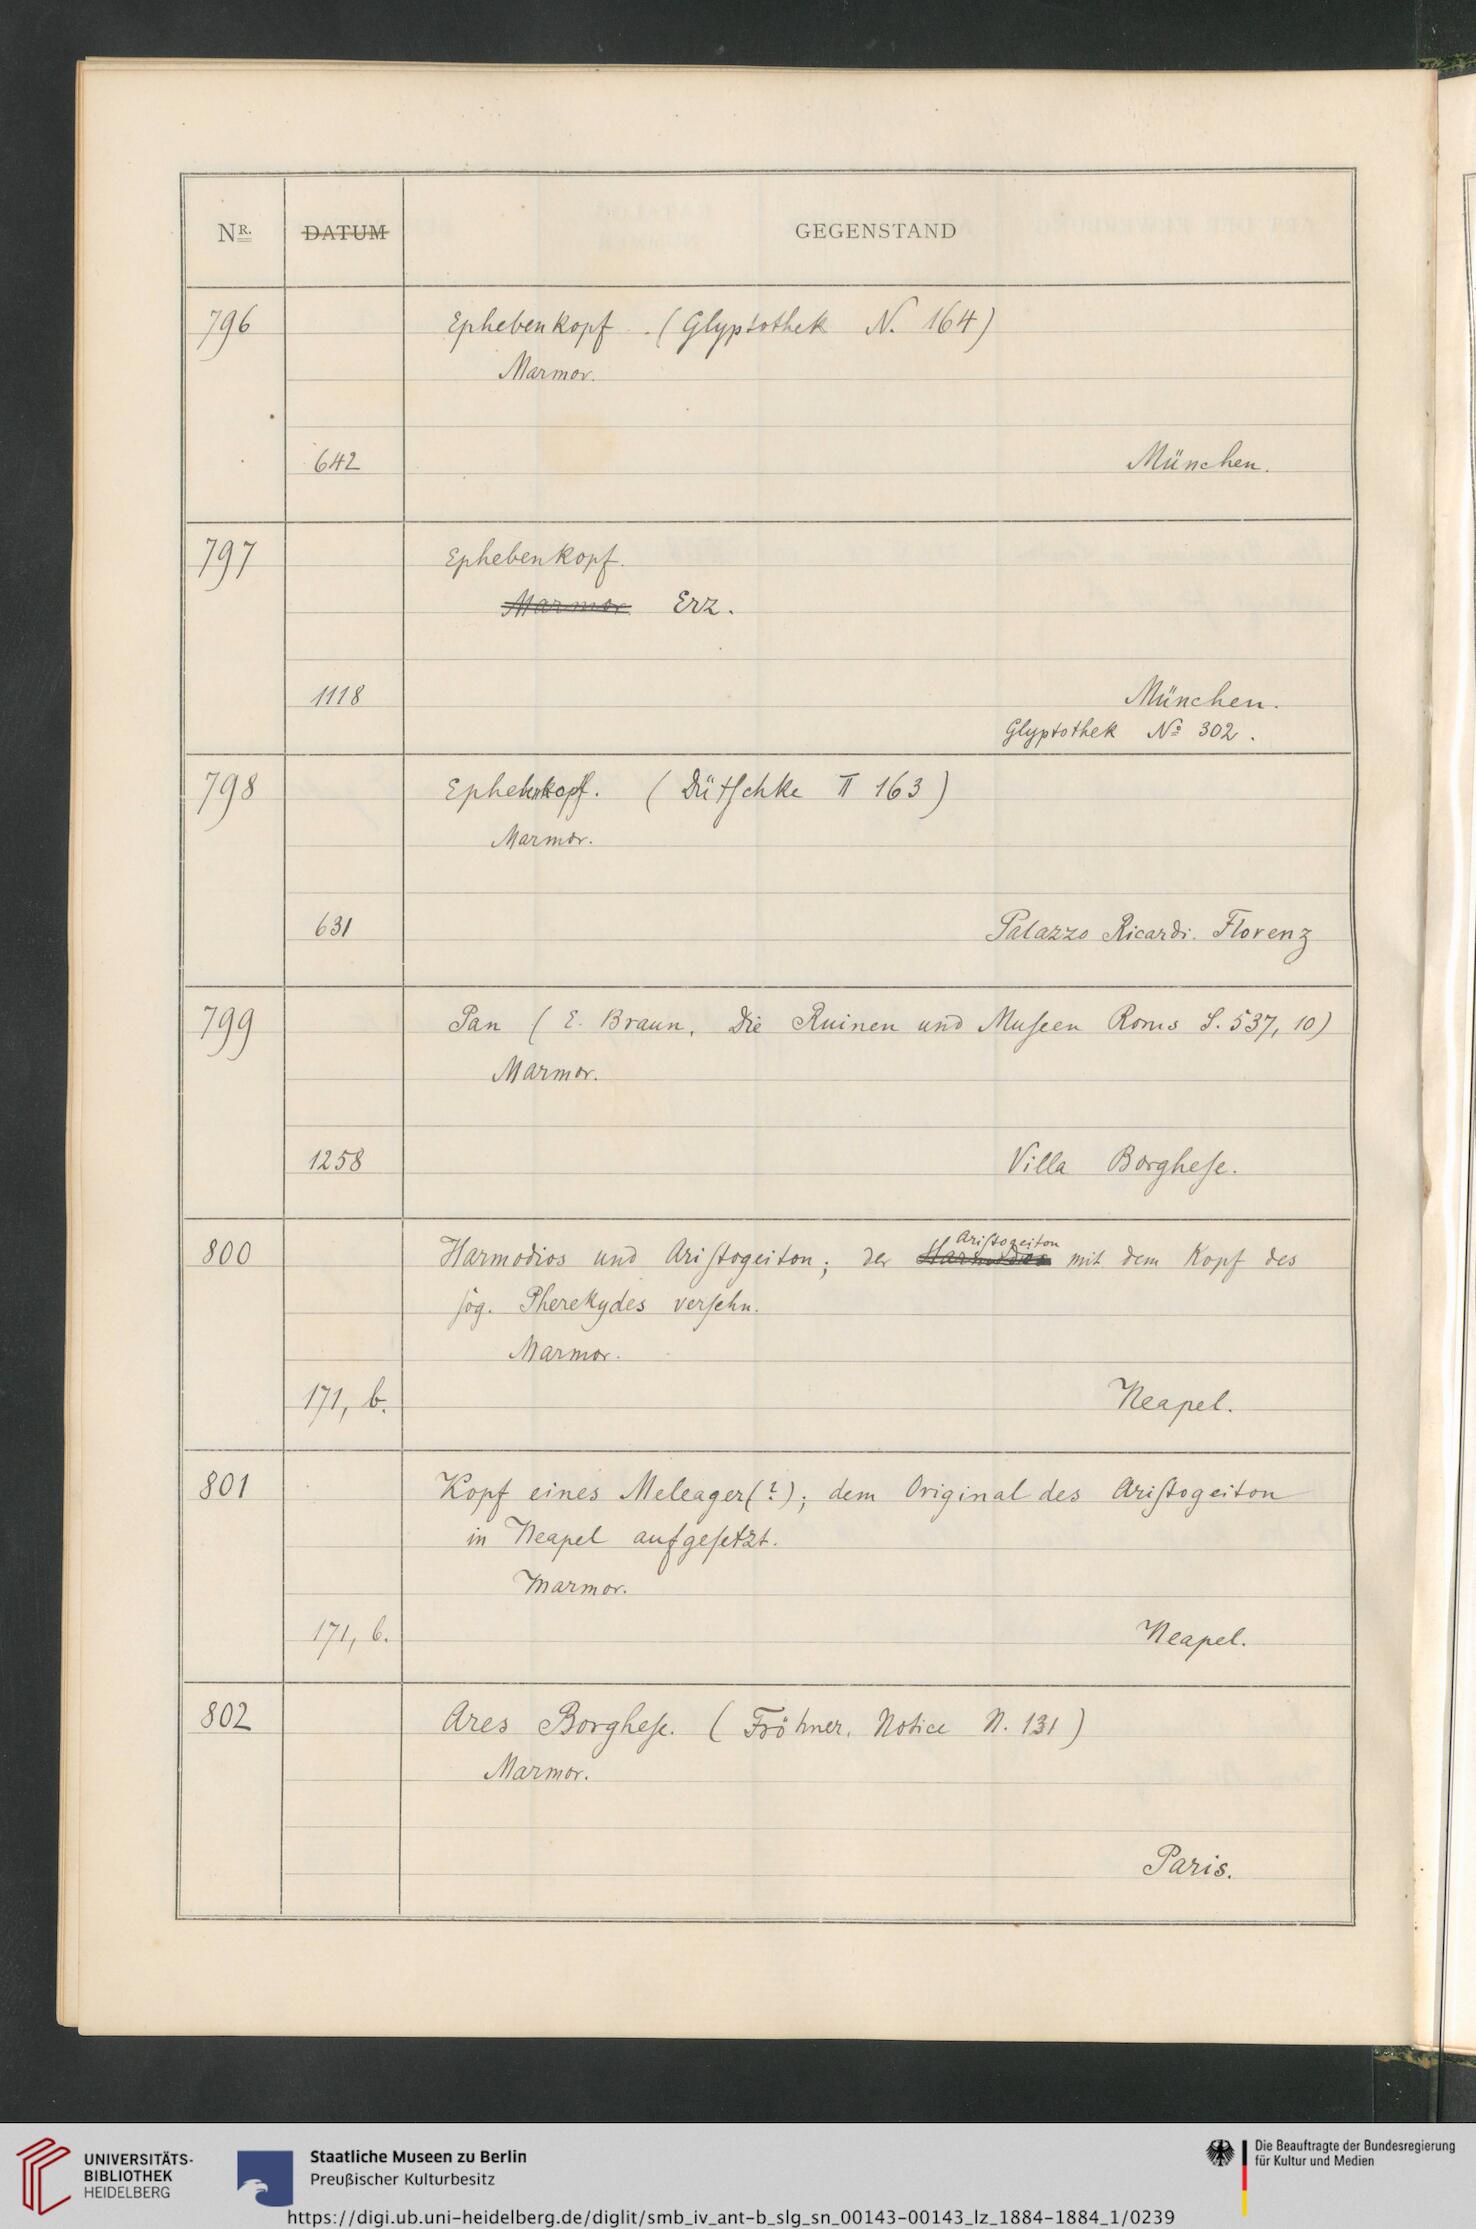 NR. DATUM GEGENSTAND
796 Ephebenkopf. (Glyptothek N. 164)
Marmor.
642 München.
797 Ephebenkopf.
Marmor Erz.
1118 München.
Glyptothek No 302.
798 Ephebenkopf. (Dütſchke II 163)
Marmor.
631 Palazzo Ricardi. Florenz
799 Pan (E. Braun, Die Ruinen und Muſeen Roms S. 537, 10)
Marmor.
1258 Villa Borgheſe.
Ariſtogeiton
800 Harmodios und Ariſtogeiton; der Harmodios mit dem Kopf des
ſog. Pherekydes verſehn.
Marmor.
171, b. Neapel.
801 Kopf eines Meleager(?); dem Original des Ariſtogeiton
in Neapel aufgeſetzt.
Marmor.
171, b. Neapel.
802 Ares Borgheſe. (Fröhner, Notice N. 131)
Marmor.
Paris.
UNIVERSITÄTS-
BIBLIOTHEK
HEIDELBERG
Staatliche Museen zu Berlin
Preußischer Kulturbesitz
Die Beauftragte der Bundesregierung
für Kultur und Medien
https://digi.ub.uni-heidelberg.de/diglit/smb_iv_ant-b_slg_sn_00143-00143_lz_1884-1884_1/0239